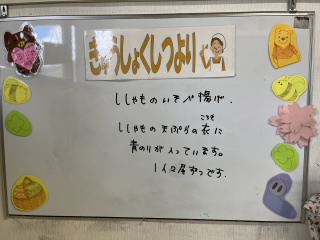 きゅうしょくしつより
ししゃものいそべ揚げ。
ころも
ししゃもの天ぷらの衣に
青のりが入っています。
1人2尾ずつです。